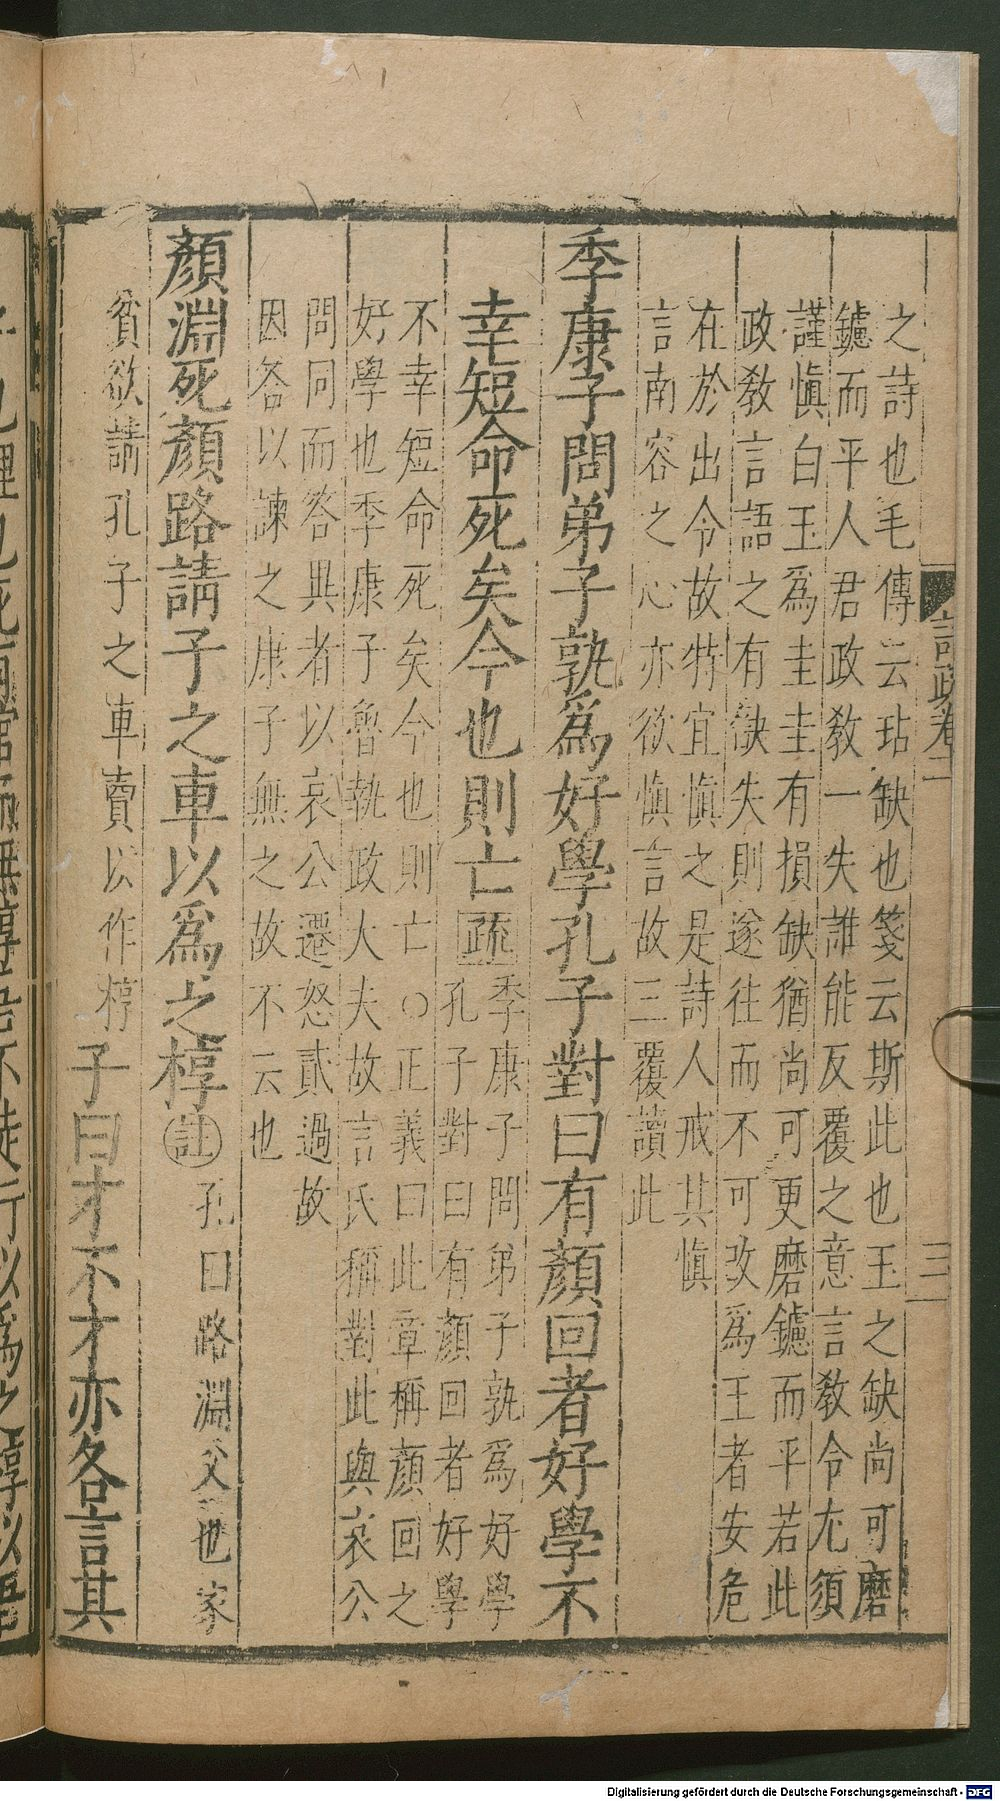 之詩也毛傳云玷缺也箋云斯此也玉之缺尚可磨
鑢而平人君政教一失誰能反覆之意言教令尤須
謹愼白玉爲圭圭有損缺猶尚可更磨鑢而平若此
政教言語之有缺失則遂往而不可改爲王者安危
在於出令故特宜愼之是詩人戒其愼
言南容之心亦欲愼言故三覆讀此
季康子問弟子孰爲好學孔子對曰有顏回者好學不
幸短命死矣今也則亡疏
季康子問弟子孰爲好學
孔子對曰有顏回者好學
不幸短命死矣今也則亡○正義曰此章稱顏回之
好學也季康子魯執政大夫故言氏稱對此與哀公
問同而答異者以哀公遷怒貳過故
因答以諫之康子無之故不云也
顏淵死顏路請子之車以爲之椁註
孔曰路淵父也家
貧欲請孔子之車賣以作椁
子曰才不才亦各言其
語疏卷二
三
Digitalisierung gefördert durch die Deutsche Forschungsgemeinschaft - DFG